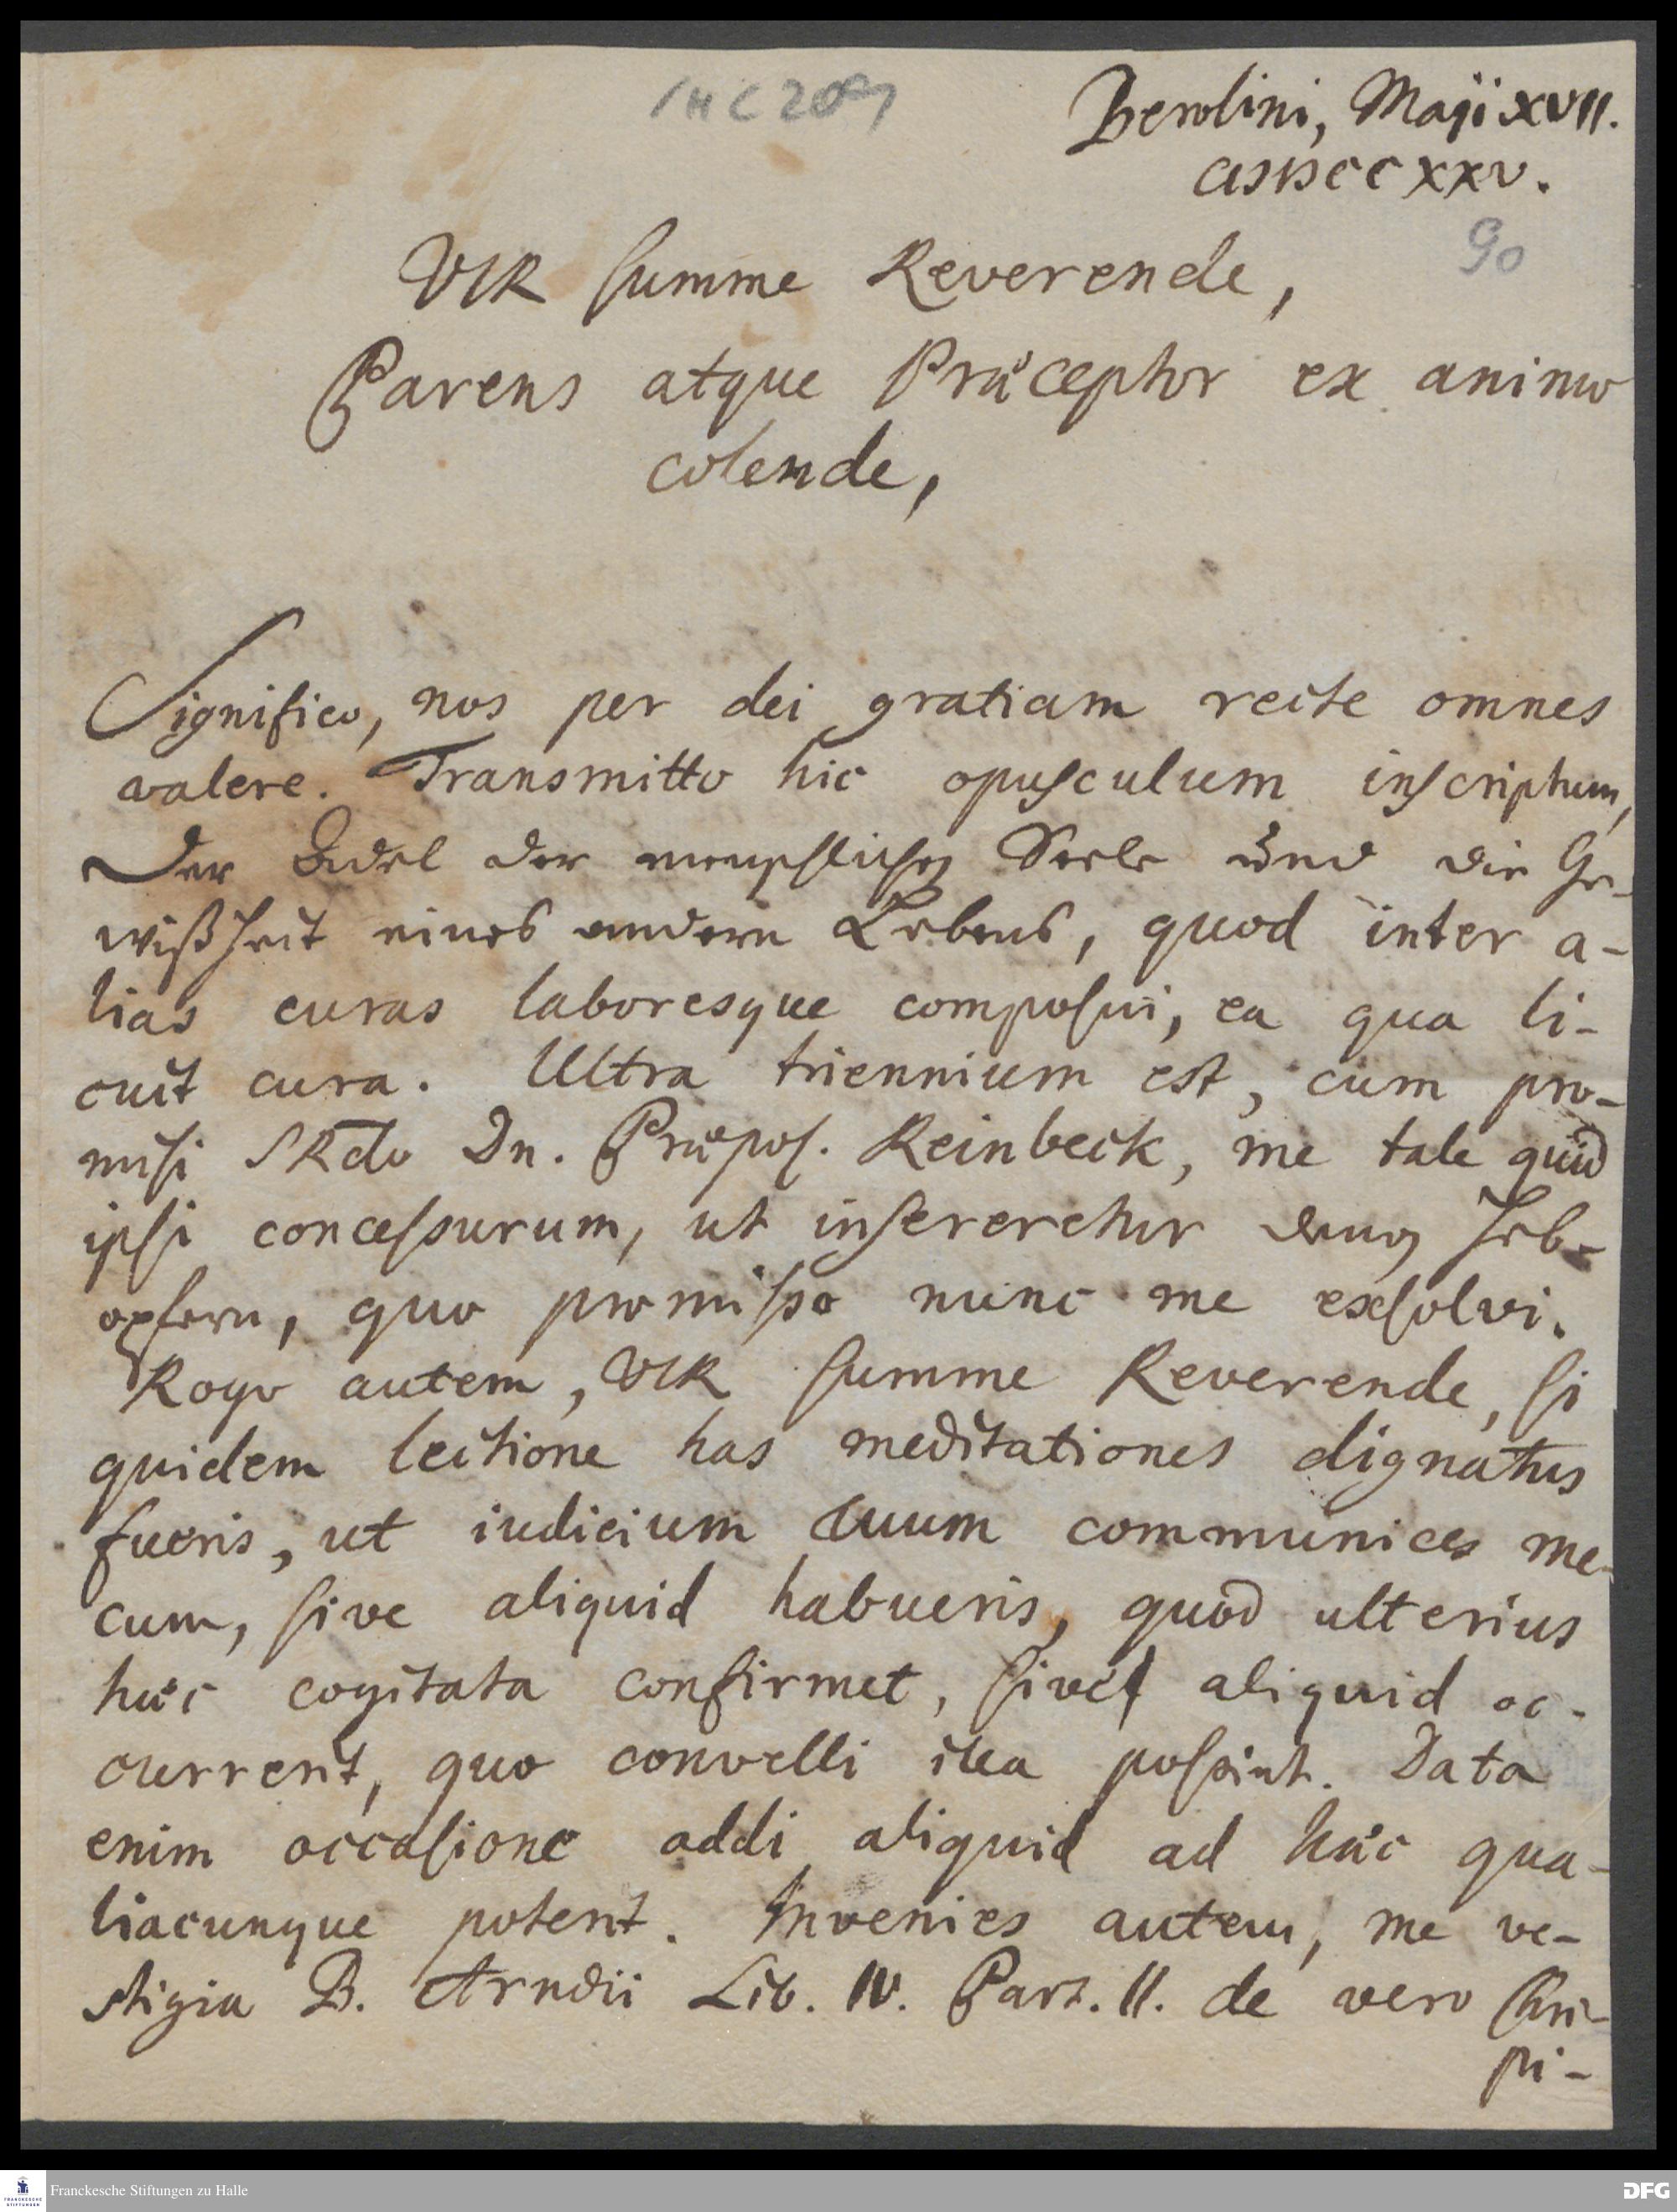 Berolini, Maji XVII.
CIƆIƆCCXXV.
90
VIR summe Reverende,
Parens atque Præceptor ex animo
colende,
Significo, nos per dei gratiam recte omnes
valere. Transmitto hic opusculum inscriptum,
Der Adel der menschlichen Seele und die Ge-
wißheit eines andern Lebens, quod inter a-
lias curas laboresque composui, ea qua li-
cuit cura. Ultra triennium est, cum pro-
misi SRdo Dn. Præpos. Reinbeck, me tale quid
ipsi concessurum, ut insereretur denen Heb-
opfern, quo promisso nunc me exsolvi.
Rogo autem, VIR summe Reverende, si
quidem lectione has meditationes dignatus
fueris, ut iudicium tuum communices me-
cum, sive aliquid habueris, quod ulterius
hæc cogitata confirmet, sive aliquid oc-
currerit, quo convelli illa possint. Data
enim occasione addi aliquid ad hæc qua-
liacunque poterit. Invenies autem, me ve-
stigia B. Arndii Lib. IV. Part. II. de vero Chri-
sti-
Franckesche Stiftungen zu Halle
FRANCKESCHE
STIFTUNGEN
DFG